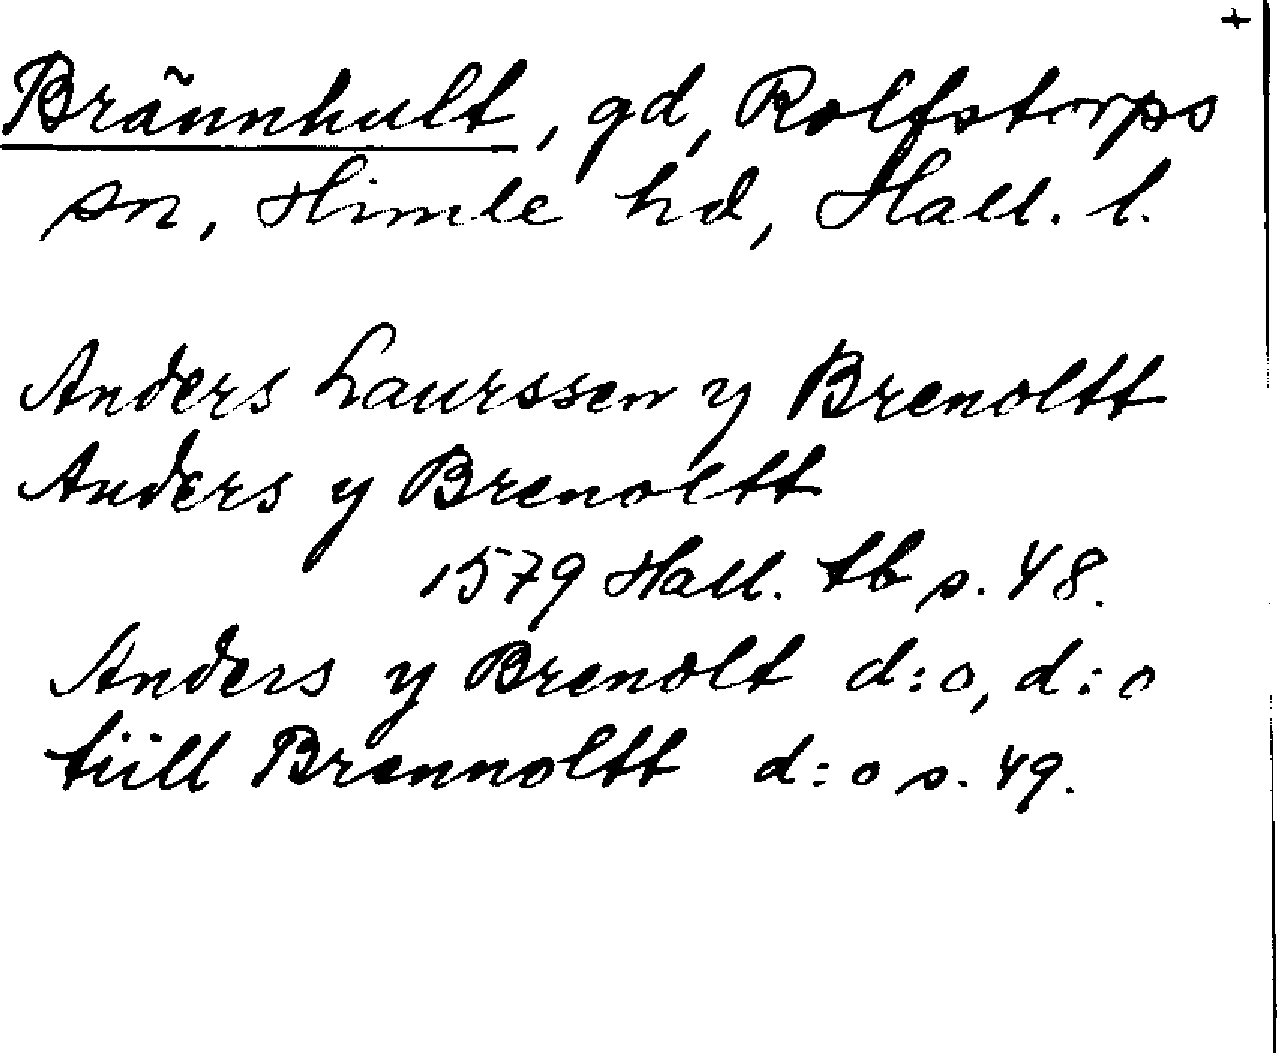 +
Brännhult, gd, Rolfstorps
sn, Himle hd, Hall. l.
Anders Laurssen y Brenoltt
Anders y Brenoltt
1579 Hall. tb s. 48.
Anders y Brenolt d:o, d:o
tiill Brennoltt d:o s. 49.